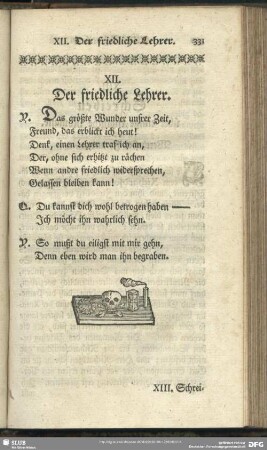 XII. Der friedliche Lehrer. 331
XII.
Der friedliche Lehrer.
P. Das größte Wunder unsrer Zeit,
Freund, das erblickt ich heut!
Denk, einen Lehrer traf ich an,
Der, ohne sich erhitzt zu rächen
Wenn andre friedlich widersprechen,
Gelassen bleiben kann!
Q. Du kannst dich wohl betrogen haben —
Ich möcht ihn wahrlich sehn.
P. So mußt du eiligst mit mir gehn,
Denn eben wird man ihn begraben.
XIII. Schrei-
SLUB
DFG